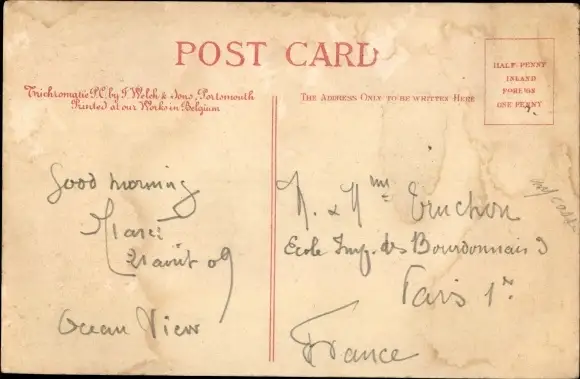 POST CARD
Trichromatic P.C. by J. Welch & Sons, Portsmouth
Printed at our Works in Belgium
THE ADDRESS ONLY TO BE WRITTEN HERE
HALF-PENNY
INLAND
FOREIGN
ONE PENNY
Good morning
21 août 09
Ocean View
M. & Mme
Ecole Imp. des Bourdonnais
Paris 1r.
France